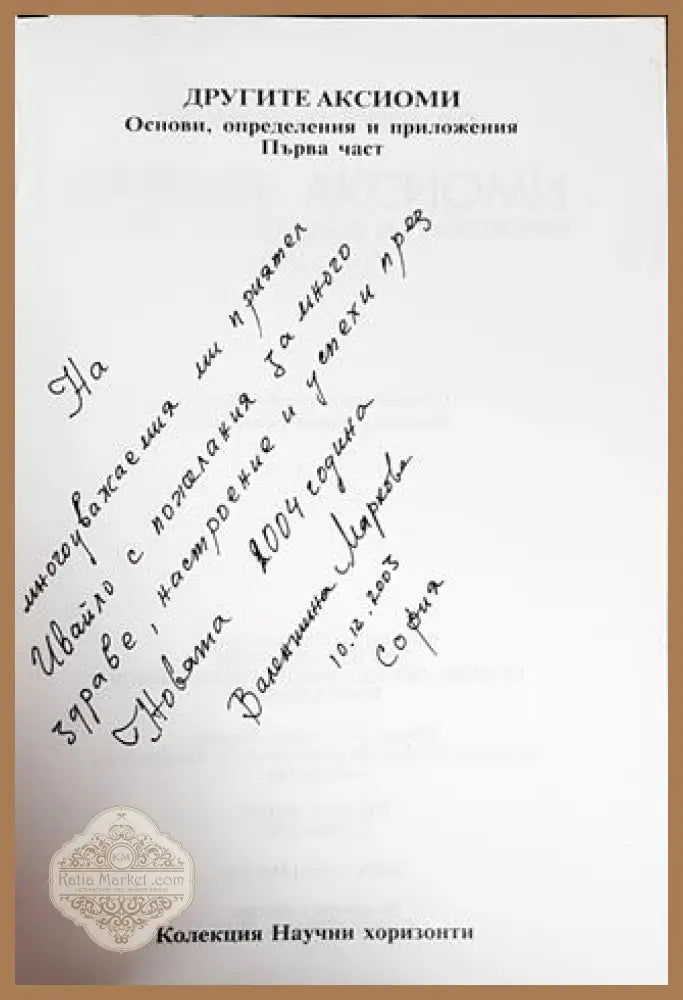 ДРУГИТЕ АКСИОМИ
Основи, определения и приложения
Първа част
На
многоуважаемия ми приятел
Ивайло с пожелания за много
здраве, настроение и успехи през
Новата 2004 година
Валентина Маркова
10.12.2003
София
KM
Katia Market .com
Колекция Научни хоризонти